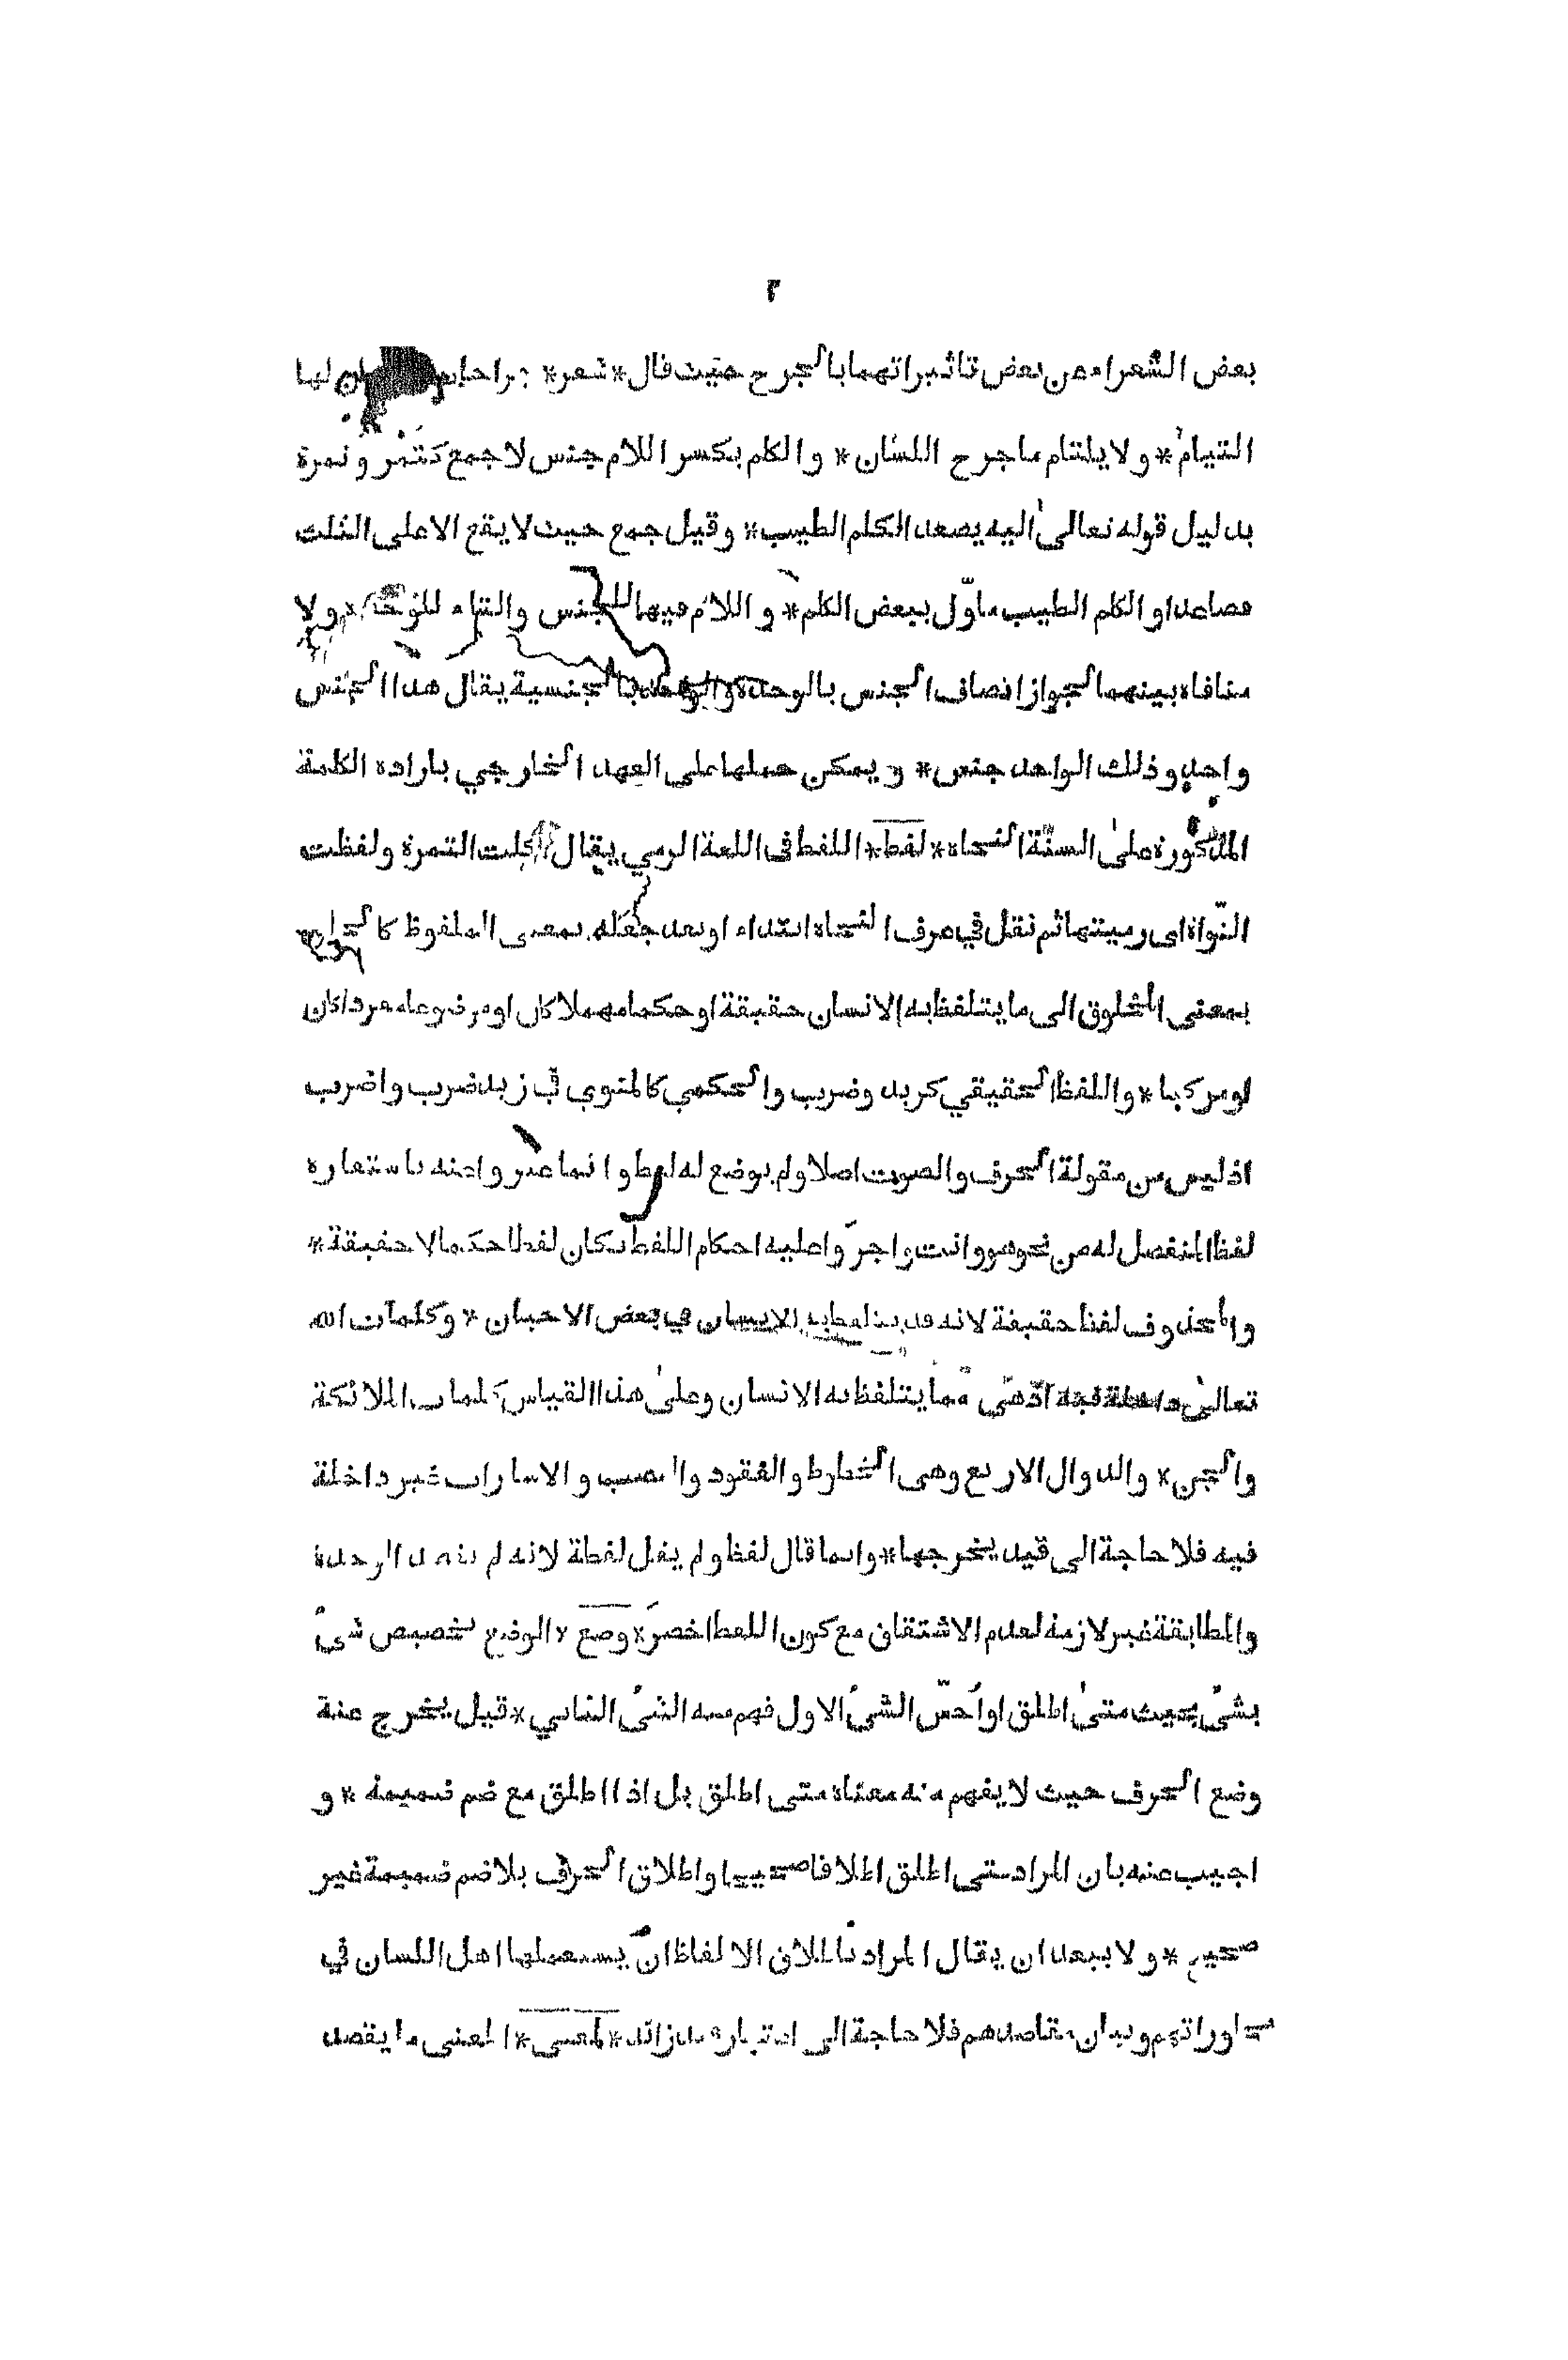 ٢
بعض الشعراء عن بعض تاثيراتهما بالجرح حيث قال * شعر * جراحات لها
التيام * ولا يلتام ما جرح اللسان * والكلم بكسر اللام جنس لا جمع كتمر و تمرة
بدليل قوله تعالى اليه يصعد الكلم الطيب * وقيل جمع حيث لا يقع الا على الثلث
فصاعدا و الكلم الطيب ماوّل ببعض الكلم * و اللام فيها للجنس والتاء للوحدة * ولا
منافاه بينهما لجواز اتصاف الجنس بالوحدة والواحد بالجنسية يقال هذا الجنس
واحد وذلك الواحد جنس * و يمكن حملها على العهد الخارجي باراده الكلمة
المذكورة على السنة النحاه * لفظ * اللفظ فى اللغة الرمي يقال اكلت التمرة ولفظت
النّواة اى رميتها ثم نقل في عرف النحاه ابتداء او بعد جعله بمعنى الملفوظ كالخلق
بمعنى المخلوق الى ما يتلفظ به الانسان حقيقة او حكما مهملا كان او موضوعا مفردا كان
او مركبا * و اللفظ الحقيقي كزيد وضرب والحكمي كالمنوي في زيد ضرب واضرب
اذ ليس من مقولة الحرف والصوت اصلا ولم يوضع له لفظ و انما عبروا عنه باستعاره
لفظ المنفصل له من نحو هو وانت واجروا عليه احكام اللفظ فكان لفظا حكما لا حقيقة *
والمحذوف لفظ حقيقة لانه قد يتلفظ به الانسان في بعض الاحيان * وكلمات الله
تعالى داخلة فيه اذ هى مما يتلفظ به الانسان وعلى هذا القياس كلمات الملائكة
والجن * والدوال الاربع وهى الخطوط والعقود والنصب و الاشارات غير داخلة
فيه فلا حاجة الى قيد يخرجها * وانما قال لفظ ولم يقل لفظة لانه لم يقصد الوحدة
والمطابقة غير لازمة لعدم الاشتقاق مع كون اللفظ اخصر * وضع * الوضع تخصيص شئ
بشئ بحيث متى اطلق او احسّ الشئ الاول فهم منه الشئ الثاني * قيل يخرج عنه
وضع الحرف حيث لا يفهم منه معناه متى اطلق بل اذا اطلق مع ضم ضميمة * و
اجيب عنه بان المراد متى اطلق اطلاقا صحيحا واطلاق الحرف بلا ضم ضميمة غير
صحيح * و لا يبعد ان يقال المراد باطلاق الالفاظ ان يستعملها اهل اللسان في
محاوراتهم وبيان مقاصدهم فلا حاجة الى اعتبار قيد زائد * لمعنى * المعنى ما يقصد